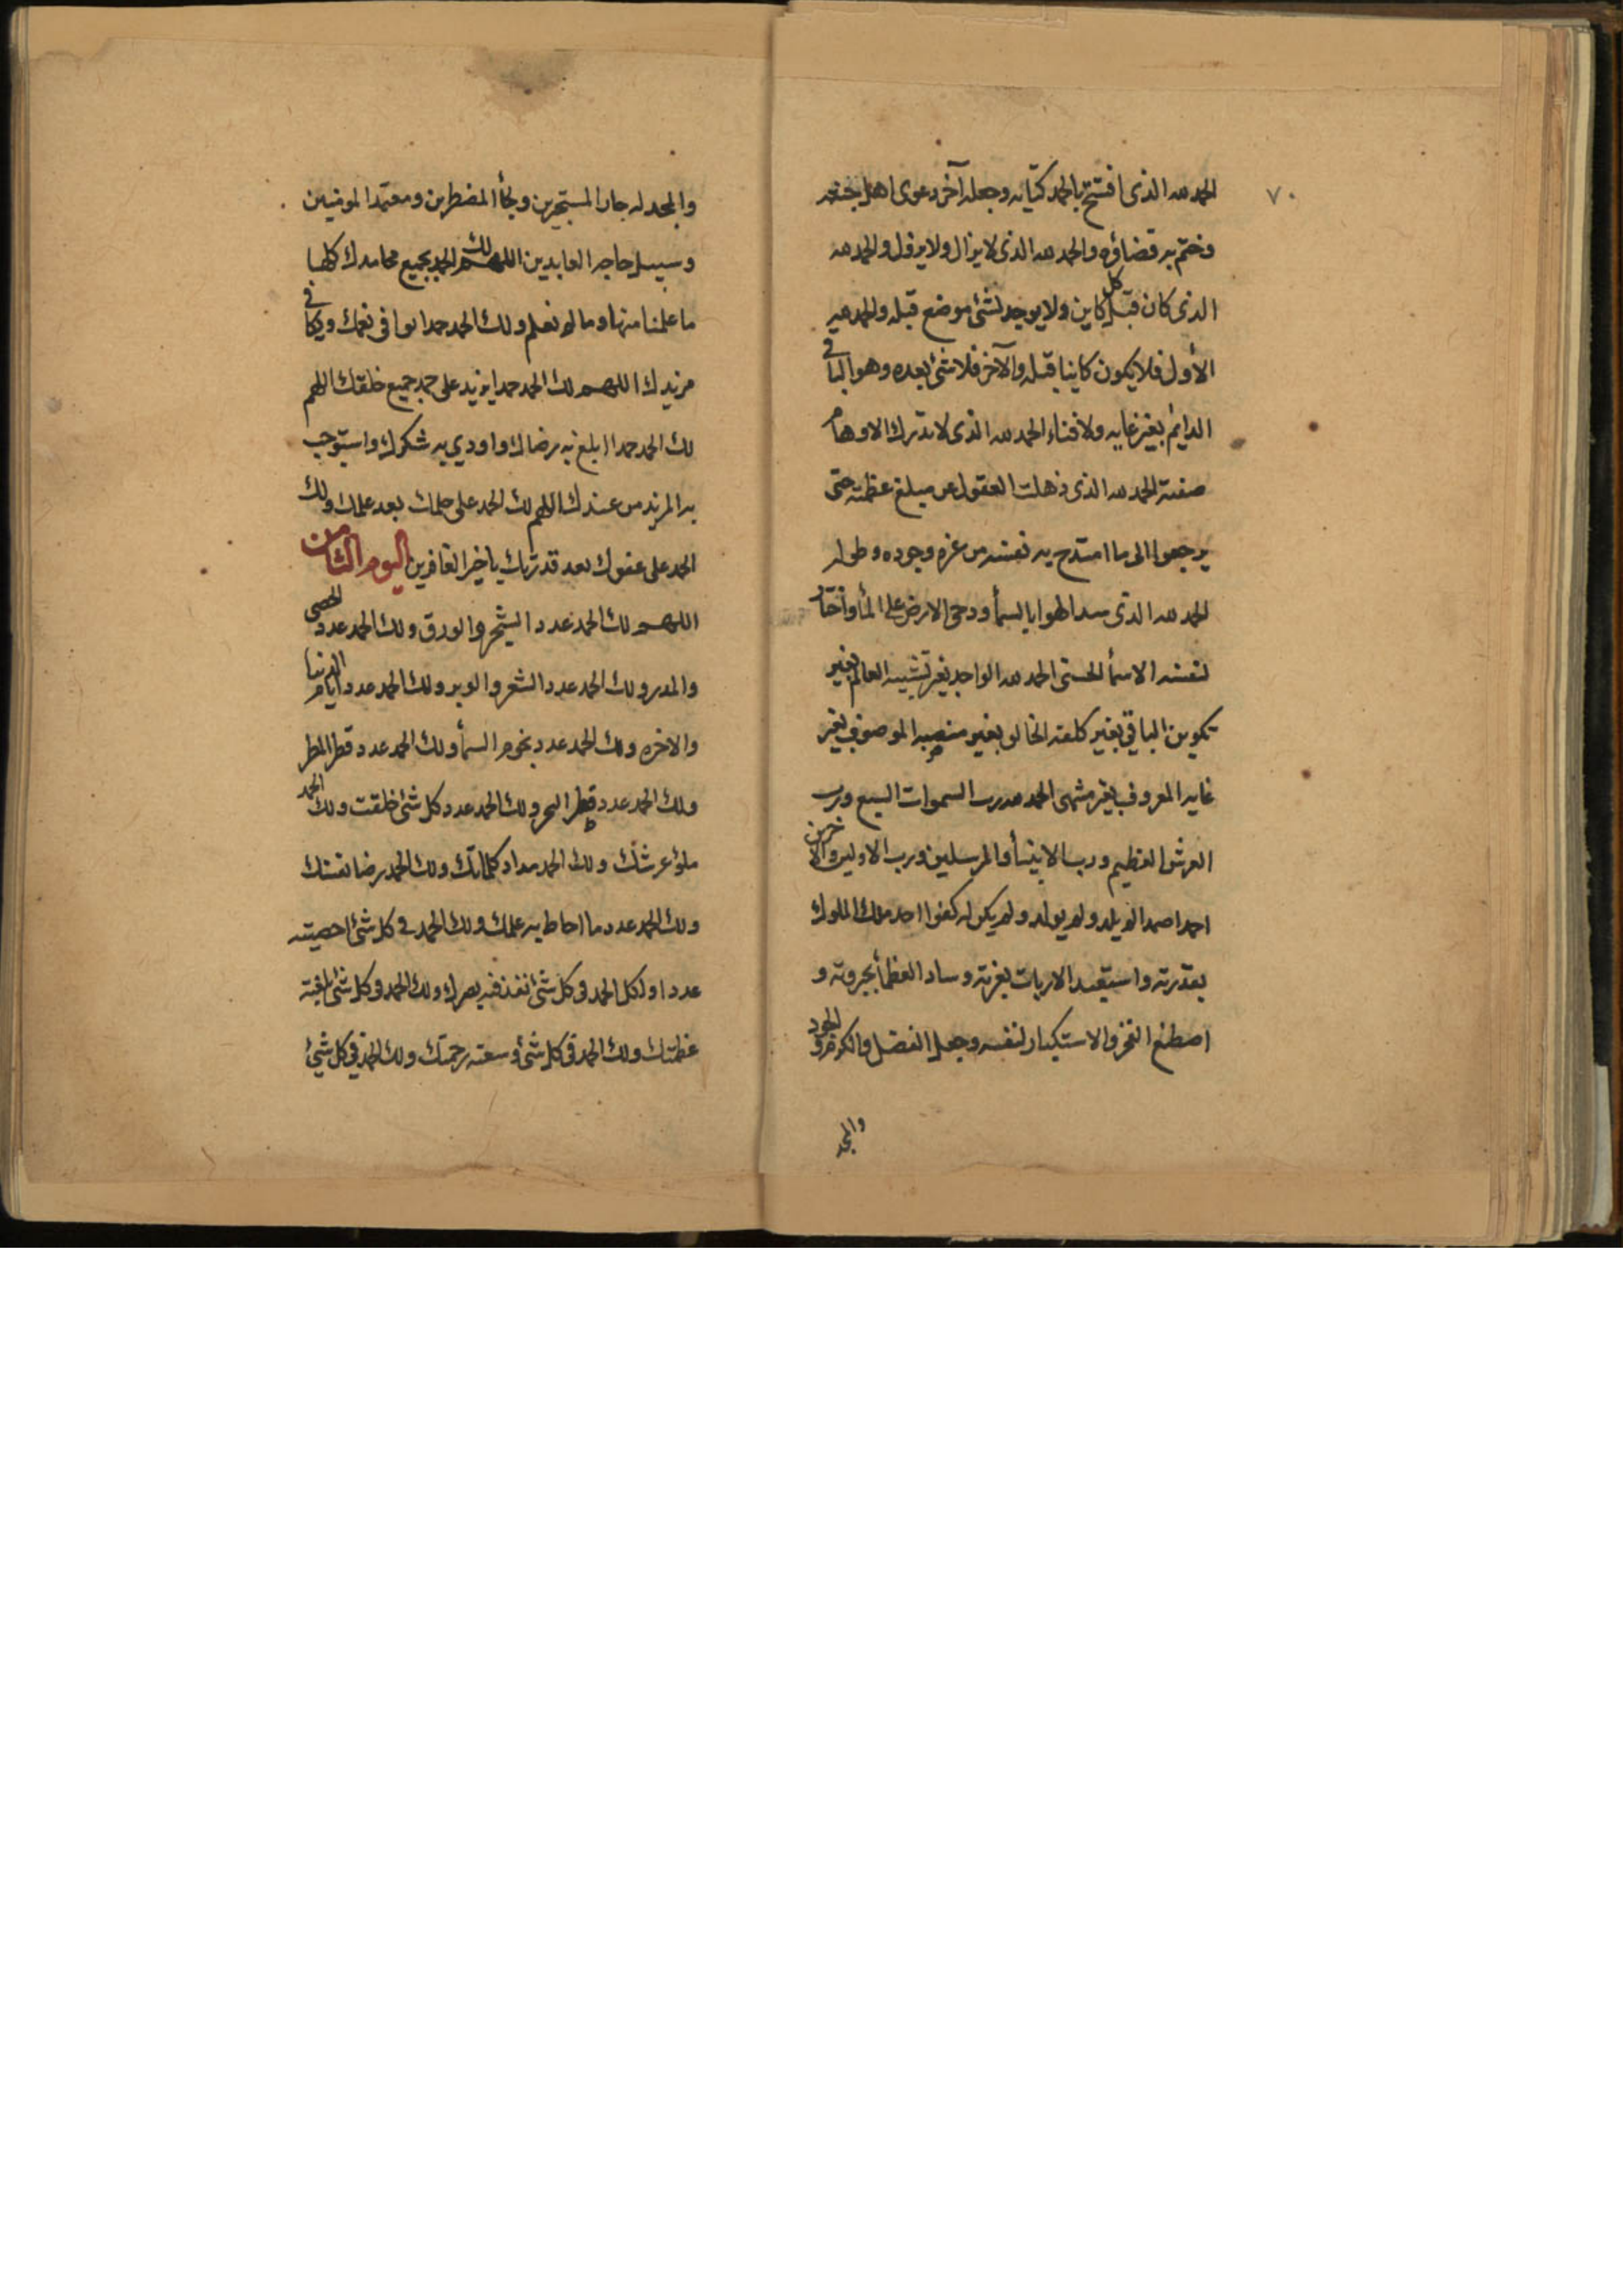 ٧٠
الحمد لله الذى افتتح بالحمد كتابه وجعله آخر دعوى اهل جنته
وختم به قضاؤه والحمد لله الذى لا يزال ولا يزول والحمد لله
الذى كان قبل كل كاين ولا يوجد لشئ موضع قبله والحمد لله
الأول فلا يكون كاينا قبله والآخر فلا شئ بعده وهو الباقى
الدايم بغير غايه ولا فناء الحمد لله الذى لا تدرك الاوهام
صفته الحمد لله الذى ذهلت العقول عن مبلغ عظمته حتى
يرجعوا الى ما امتدح به نفسه من عزه وجوده وطوله
الحمد لله الذى سد الهوا بالسمأ ودحى الارض على المأ واختار
لنفسه الاسمأ الحسنى الحمد لله الواحد بغير تشبيه العالم بغير
تكوين الباقى بغير كلفه الخالق بغير منصبه الموصوف بغير
غايه المعروف بغير منتهى الحمد لله رب السموات السبع ورب
العرش العظيم ورب الانبيأ والمرسلين ورب الاولين والاخرين
احدا صمدا لم يلد ولم يولد ولم يكن له كفوا احد ملك الملوك
بقدرته واستعبد الارباب بعزته وساد العظمأ بجبروته و
اصطنع الفخر والاستكبار لنفسه وجعل الفضل والكرم والجود
والمجد
والمجد له جار المستجيرين ولجأ المضطرين ومعتمد المومنين
وسبيل حاجه العابدين اللهم لك الحمد بجميع محامدك كلها
ما علمنا منها وما لم نعلم ولك الحمد حمدا يوافى نعمك ويكافى
مزيدك اللهم لك الحمد حمدا يزيد على حمد جميع خلقك اللهم
لك الحمد حمدا ابلغ به رضاك واودي به شكرك واستوجب
به المزيد من عندك اللهم لك الحمد على حلمك بعد علمك ولك
الحمد على عفوك بعد قدرتك يا خير الغافرين اليوم الثامن
اللهم لك الحمد عدد الشجر والورق ولك الحمد عدد الحصى
والمدر ولك الحمد عدد الشعر والوبر ولك الحمد عدد ايام الدنيا
والاخره ولك الحمد عدد نجوم السمأ ولك الحمد عدد قطر المطر
ولك الحمد عدد قطر البحر ولك الحمد عدد كل شئ خلقت ولك الحمد
ملؤ عرشك ولك الحمد مداد كلماتك ولك الحمد رضا نفسك
ولك الحمد عدد ما احاط به علمك ولك الحمد فى كل شئ احصيته
عددا ولك الحمد فى كل شئ انفذ فيه بصرك ولك الحمد فى كل شئ بلغته
عظمتك ولك الحمد فى كل شئ وسعته رحمتك ولك الحمد فى كل شئ